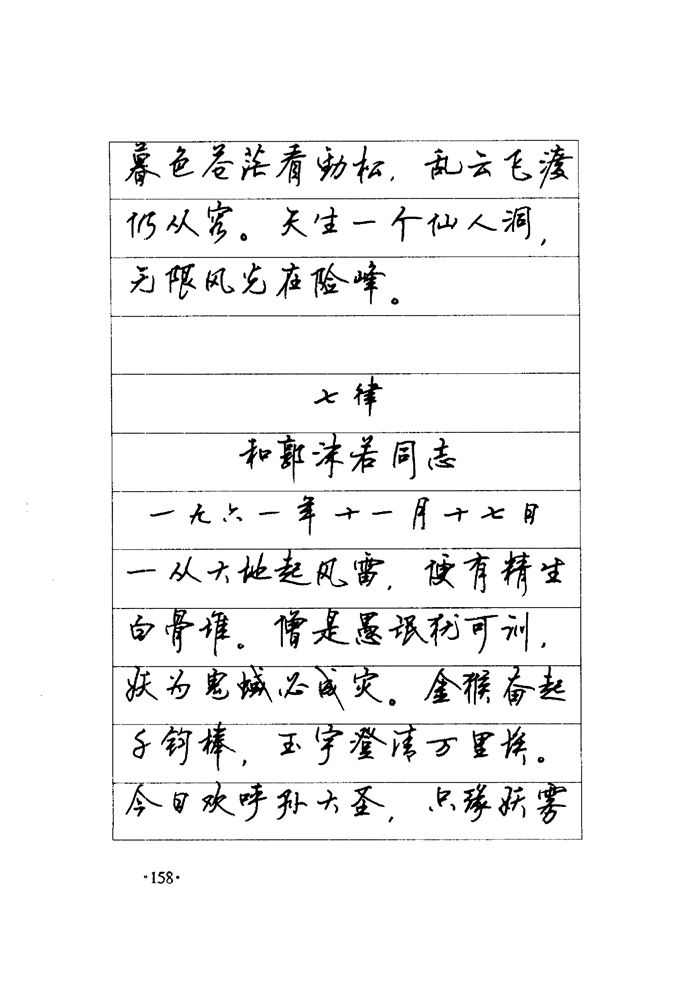 暮色苍茫看劲松，乱云飞渡
仍从容。天生一个仙人洞，
无限风光在险峰。
七律
和郭沫若同志
一九六一年十一月十七日
一从大地起风雷，便有精生
白骨堆。僧是愚氓犹可训，
妖为鬼蜮必成灾。金猴奋起
千钧棒，玉宇澄清万里埃。
今日欢呼孙大圣，只缘妖雾
·158·